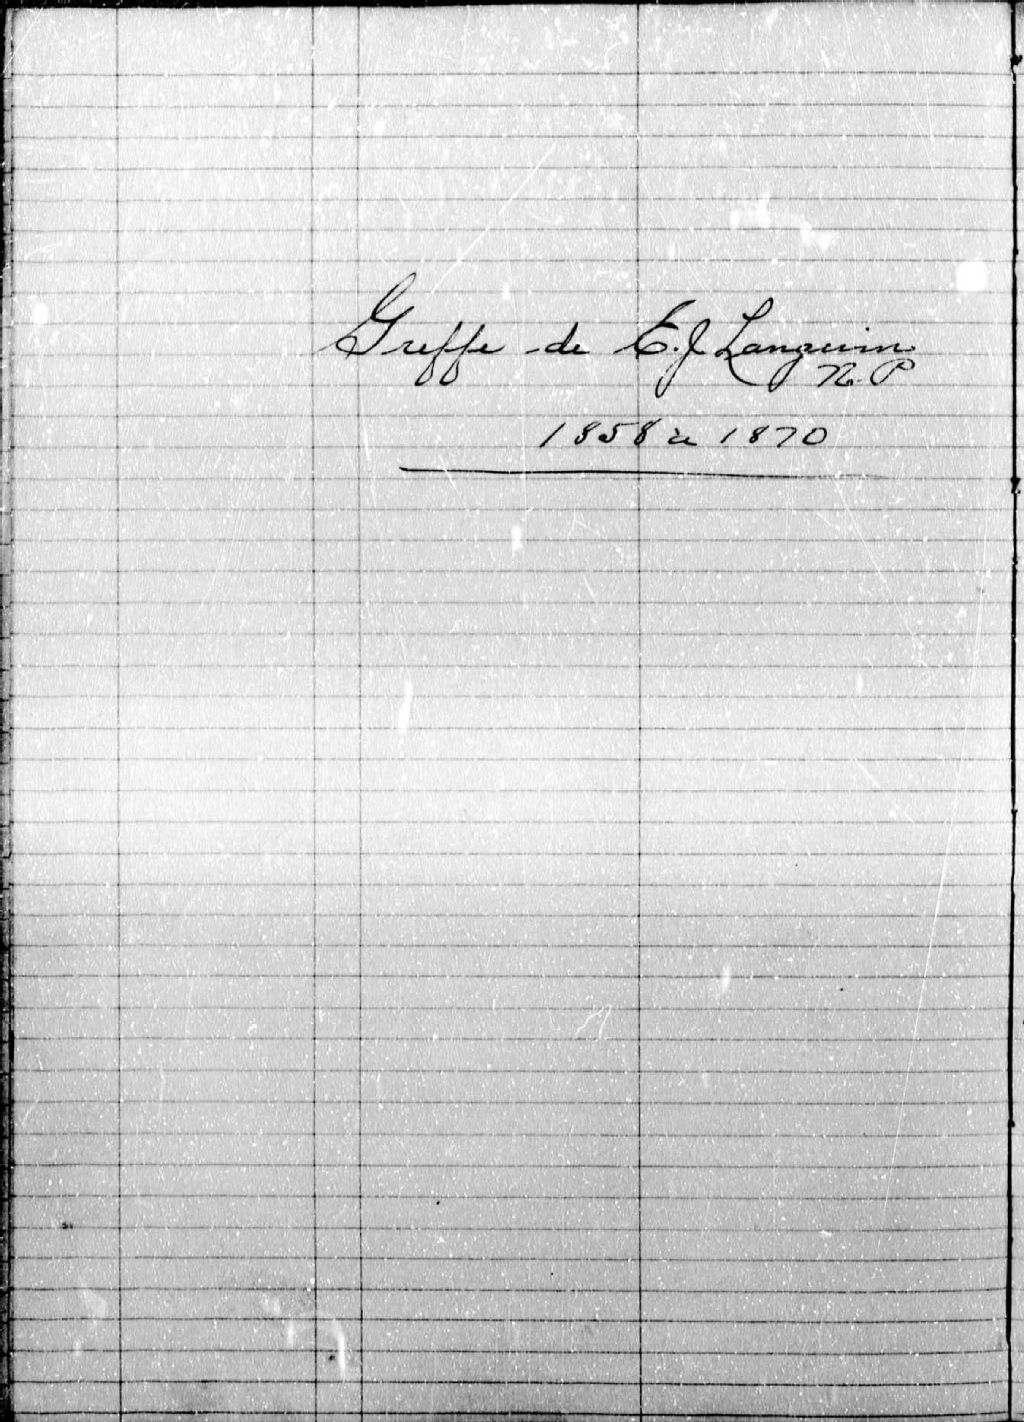 Greffe de E. J. Langevin
N. P
1858 à 1870